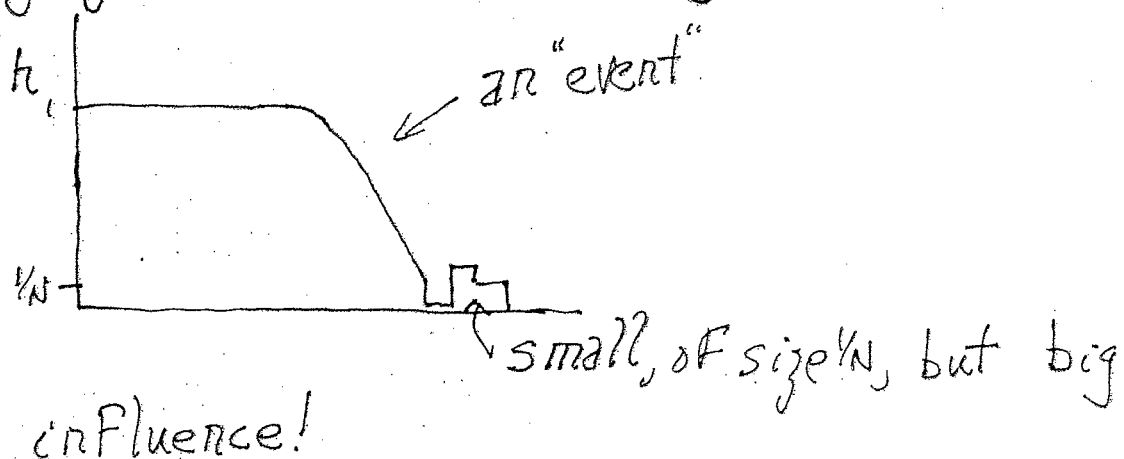 h
1
an "event"
1/N
small, of size 1/N, but big
influence!